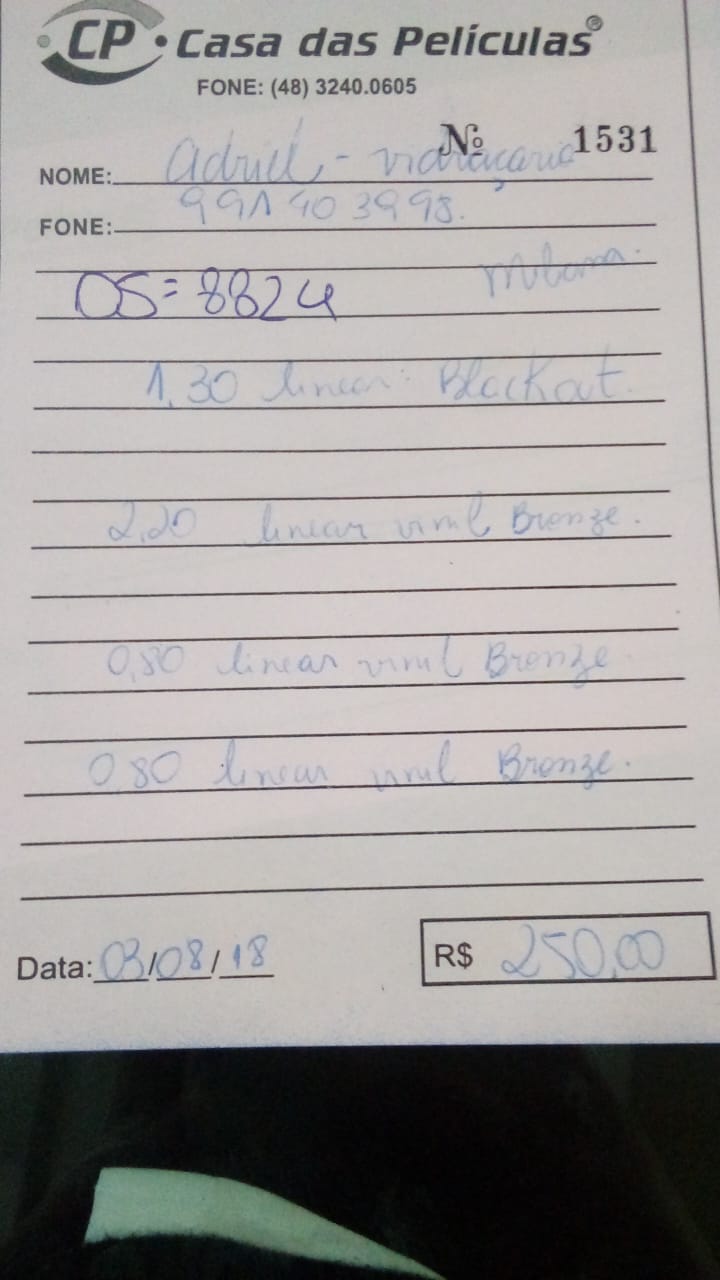 CP • Casa das Películas®
FONE: (48) 3240.0605
Nº 1531
NOME: Adriel - vidraçaria
FONE: 991403998.
OS= 8824
1,30 linear Blackout.
2,20 linear vinil Bronze.
0,80 linear vinil Bronze.
0,80 linear vinil Bronze.
Data: 03/08/18
R$ 250,00